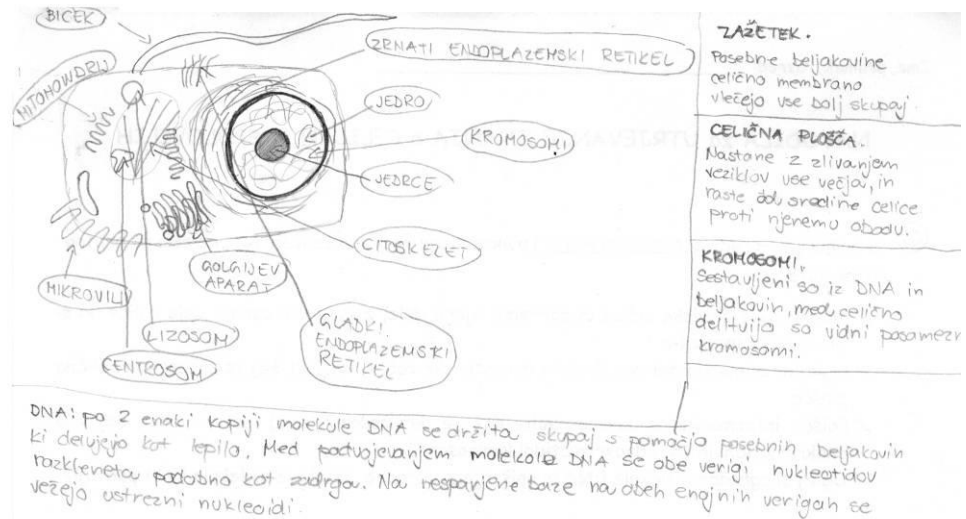 BIČEK
MITOHONDRIJ
ZRNATI ENDOPLAZEMSKI RETIKEL
JEDRO
KROMOSOMI
JEDRCE
CITOSKELET
GOLGIJEV
APARAT
MIKROVILI
LIZOSOM
CENTROSOM
GLADKI
ENDOPLAZEMSKI
RETIKEL
ZAŽETEK.
Posebne beljakovine
celično membrano
vlečejo vse bolj skupaj.
CELIČNA PLOŠČA.
Nastane z zlivanjem
veziklov vse večja, in
raste od sredine celice
proti njenemu obodu.
KROMOSOMI.
Sestavljeni so iz DNA in
beljakovin, med celično
delitvijo so vidni posamezn
kromosomi.
DNA: po 2 enaki kopiji molekule DNA se držita skupaj s pomočjo posebnih beljakovin
ki delujejo kot lepilo. Med podvojevanjem molekole DNA se obe verigi nukleotidov
razkleneta podobno kot zadrga. Na nesparjene baze na obeh enojnih verigah se
vežejo ustrezni nukleoidi.